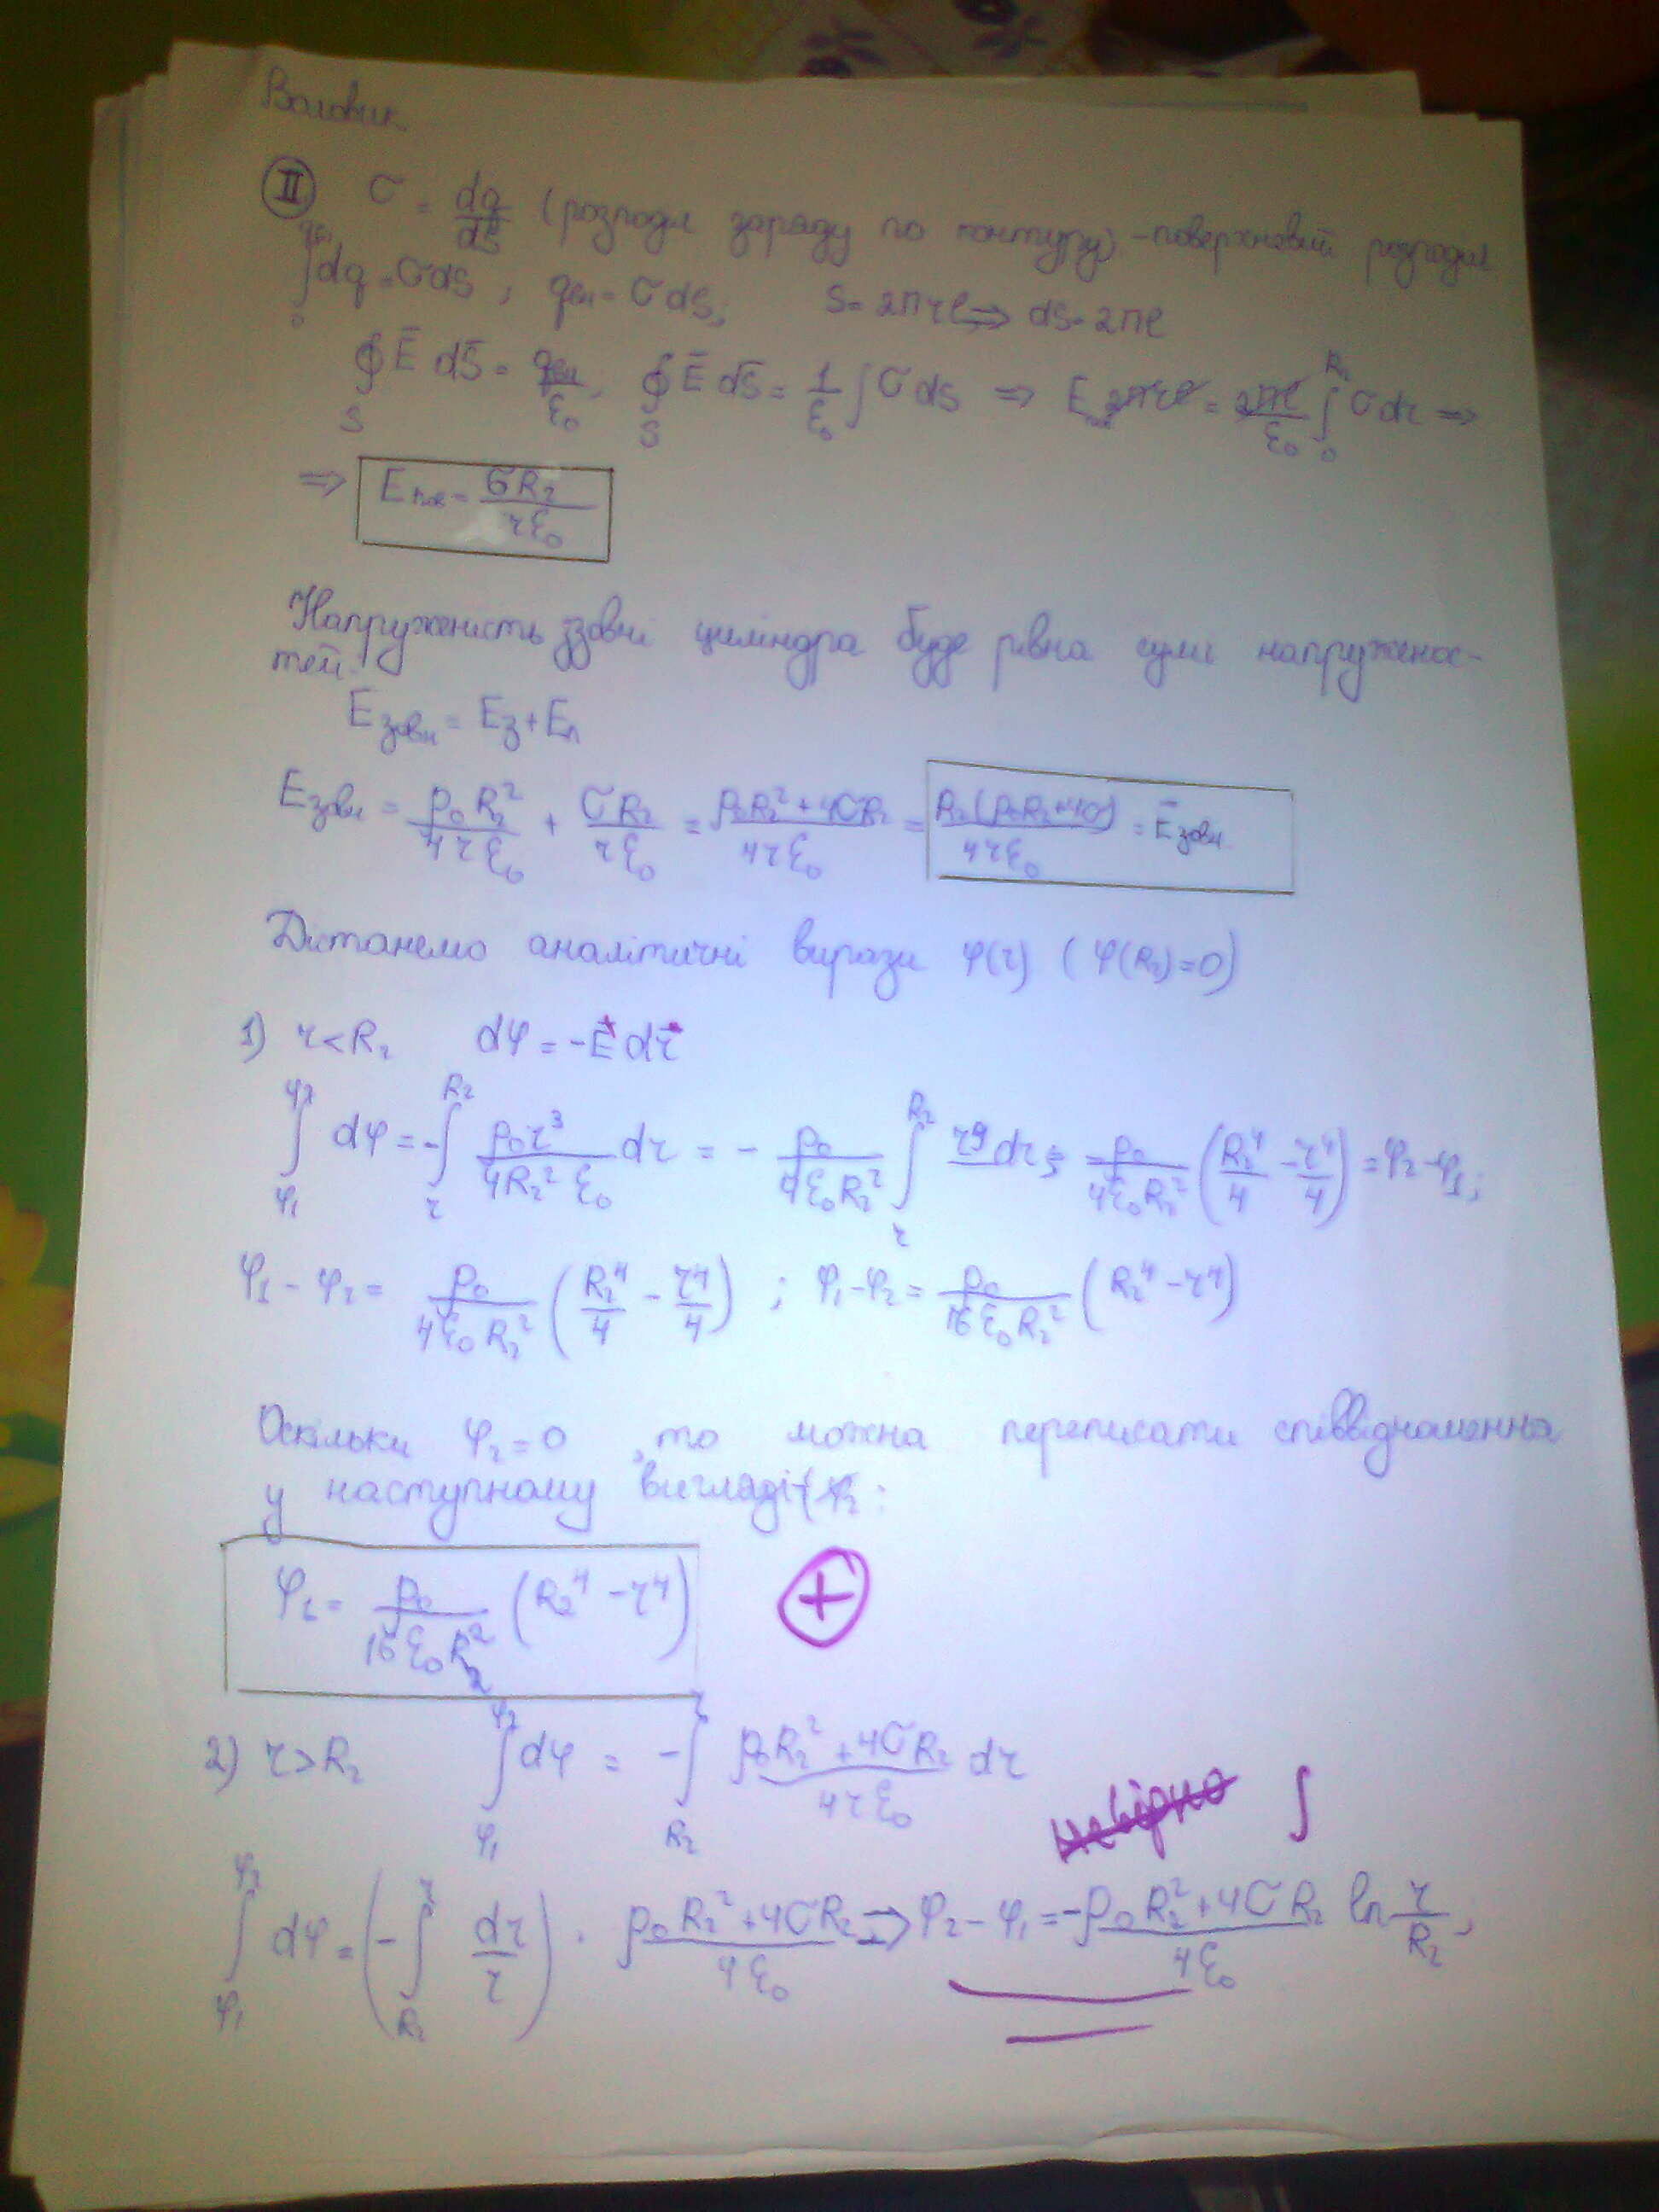 Воловик
II σ = dq/dS (розподіл заряду по контуру) - поверхневий розподіл
∫dq = σdS, qвн = σdS, S = 2πrl ⇒ dS = 2πl
∮ Ē dS̄ = qвн/ε₀, ∮ Ē dS̄ = 1/ε₀ ∫ σ dS ⇒ E 2πrl = 2πl/ε₀ ∫ σ dr ⇒
⇒ Eпов = σR₂/rε₀
Напруженість ззовні циліндра буде рівна сумі напруженос-
тей.
Eзовн = Eз + Eп
Eзовн = ρ₀R₂²/4rε₀ + σR₂/rε₀ = ρ₀R₂² + 4σR₂/4rε₀ = R₂(ρ₀R₂+4σ)/4rε₀ = Ēзовн
Дістанемо аналітичні вирази φ(r) (φ(R₂)=0)
1) r < R₂ dφ = -E⃗ dr⃗
∫ dφ = -∫ ρ₀r³/4R₂²ε₀ dr = - ρ₀/4ε₀R₂² ∫ dr = -ρ₀/4ε₀R₂² (R₂⁴/4 - r⁴/4) = φ₂-φ₁;
φ₁ - φ₂ = ρ₀/4ε₀R₂² (R₂⁴/4 - r⁴/4) ; φ₁-φ₂ = ρ₀/16ε₀R₂² (R₂⁴ - r⁴)
Оскільки φ₂=0, то можна переписати співвідношення
у наступному вигляді:
φ = ρ₀/16ε₀R₂² (R₂⁴ - r⁴) +
2) r > R₂ ∫dφ = -∫ ρ₀R₂² + 4σR₂/4rε₀ dr
невірно ∫
∫ dφ = (-∫ dr/r) · ρ₀R₂² + 4σR₂/4ε₀ ⇒ φ₂ - φ₁ = -ρ₀R₂² + 4σR₂/4ε₀ ln r/R₂;